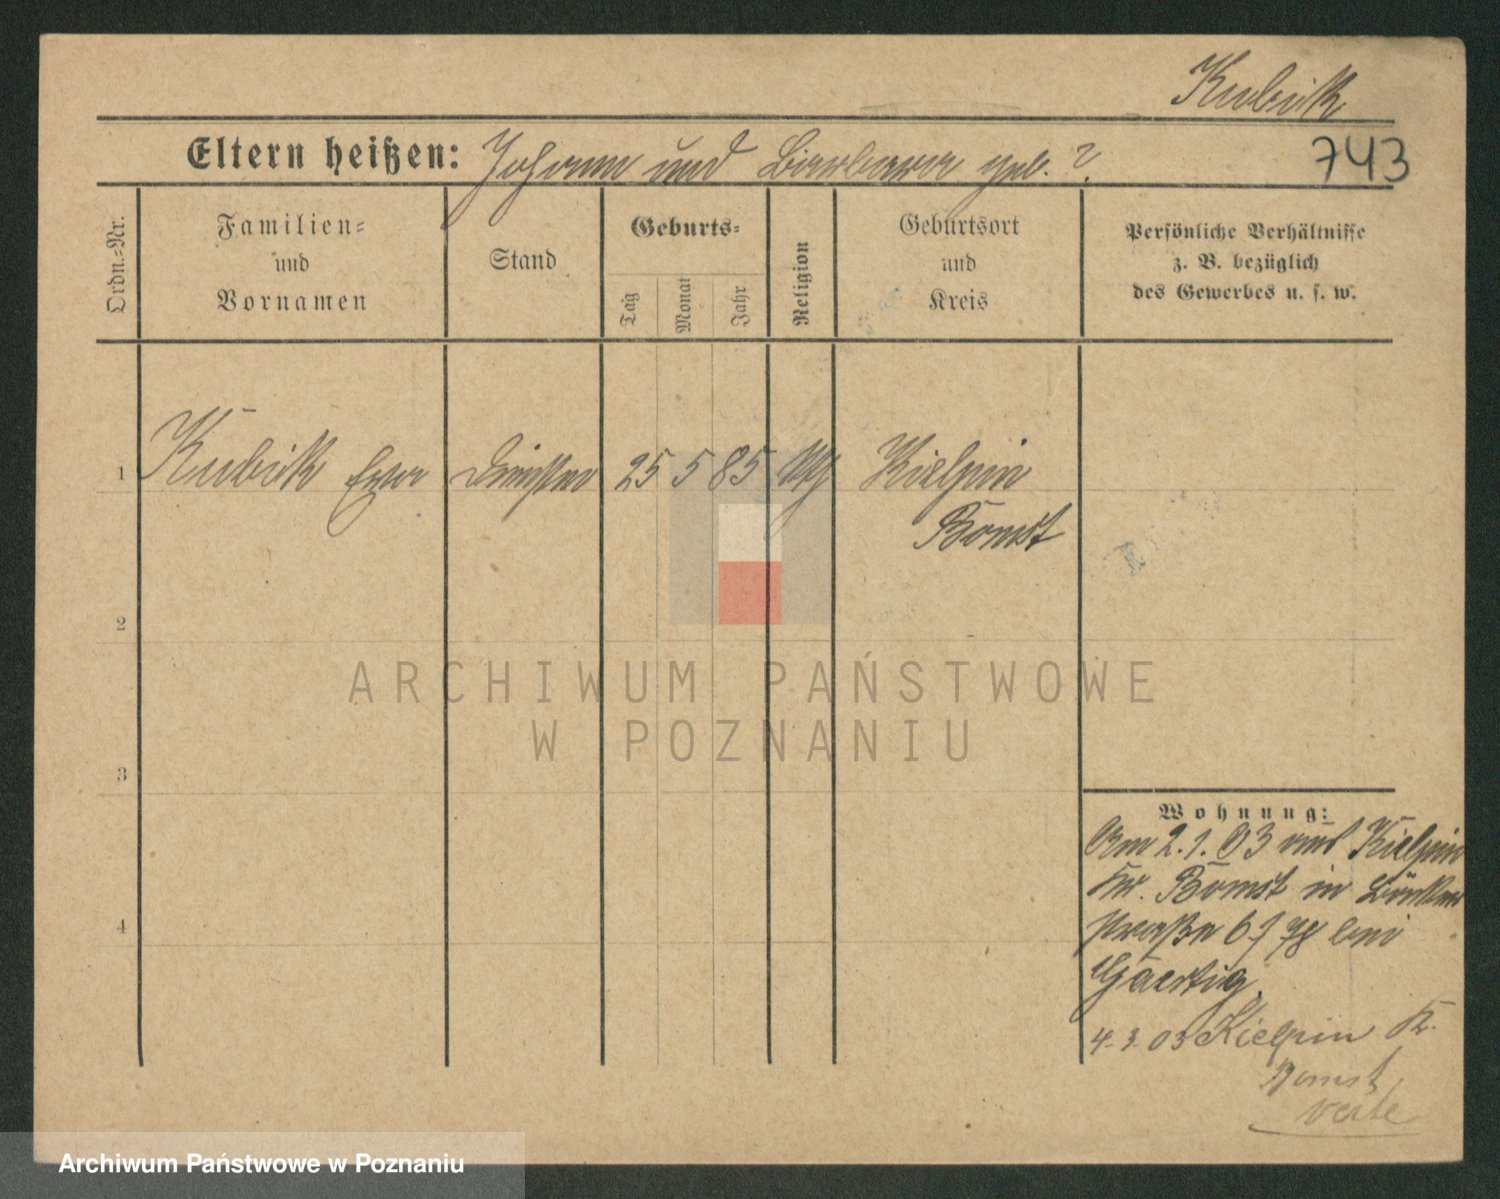 Kubik
Eltern heißen: Johann und Barbara geb. ?
743
Ordn.=Nr.
Familien=
und
Vornamen
Stand
Geburts=
Tag
Monat
Jahr
Religion
Geburtsort
und
Kreis
Persönliche Verhältnisse
z. B. bezüglich
des Gewerbes u. s. w.
1 Kubik Eva 25 5 85 Kielpin
Bomst
2
3
4
Wohnung:
Am 2.1.03 aus Kielpin
Kr. Bomst in
straße bei
Gaertig
4.3.03 Kielpin K.
Bomst
verte
ARCHIWUM PAŃSTWOWE
W POZNANIU
Archiwum Państwowe w Poznaniu